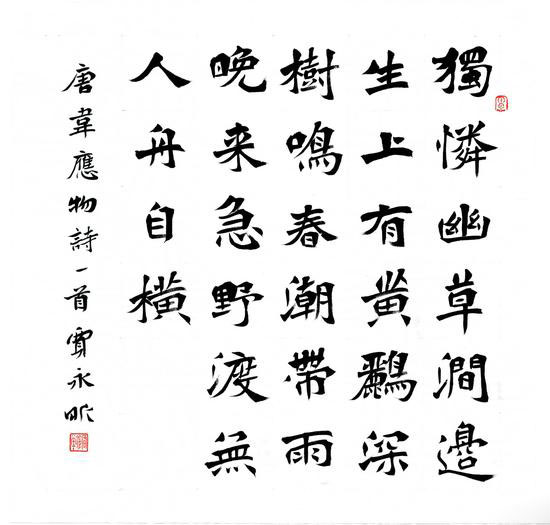 獨憐幽草澗邊
生上有黄鸝深
樹鳴春潮帶雨
晚来急野渡無
人舟自橫
唐韋應物詩一首